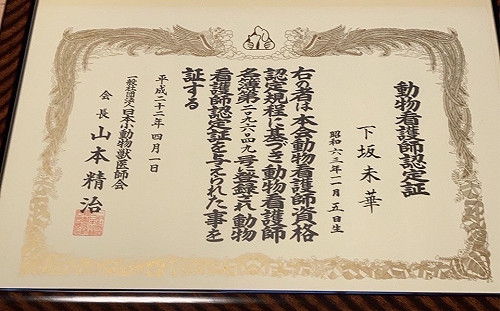 動物看護師認定証
下坂未華
昭和六三年一一月五日生
右の者は本会動物看護師資格
認定規程に基づき動物看護師
名簿第二九六〇四九号に登録され動物
看護師認定証を与えられた事を
証する
平成二十二年四月一日
一般社団法人日本小動物獣医師会
会長 山本精治